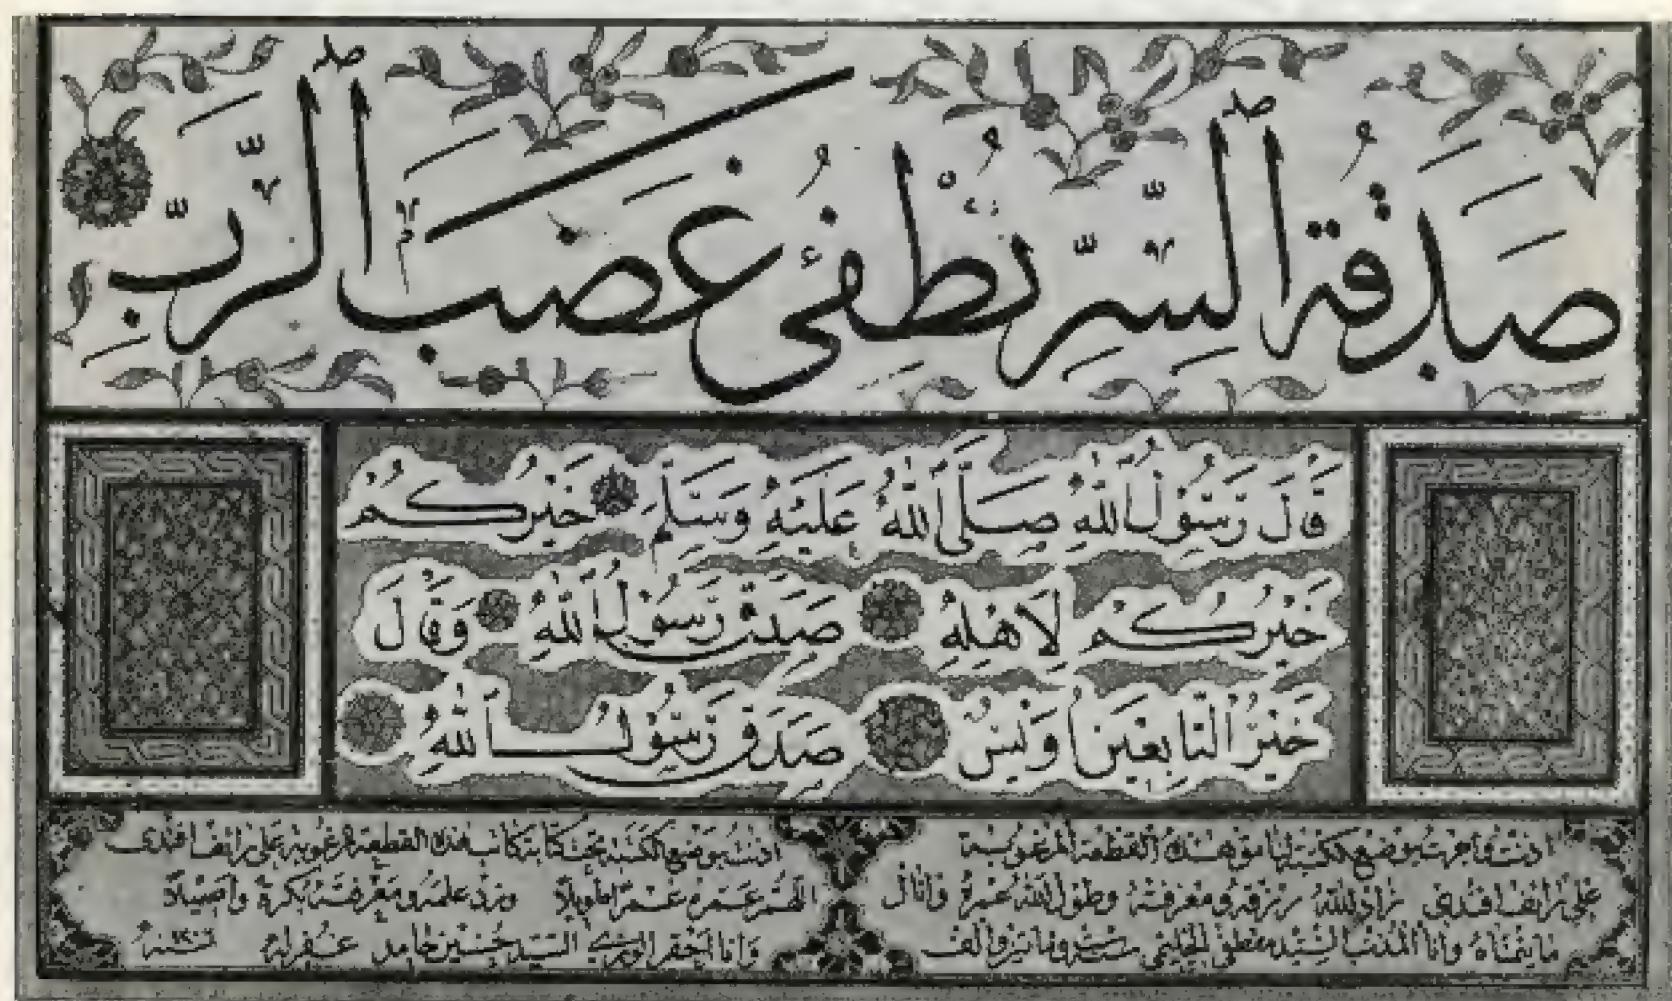 صَدَقَةُ ٱلسِّرِّ تُطْفِئُ غَضَبَ ٱلرَّبِّ
قَالَ رَسُوْلُ اللهِ صَلَّى اللهُ عَلَيْهِ وَسَلَّمَ خَيْرُكُمْ
خَيْرُكُمْ لِاَهْلِهِ صَدَقَ رَسُوْلُ اللهِ وَقَالَ
خَيْرُ التَّابِعِيْنَ اُوَيْسُ صَدَقَ رَسُوْلُ اللهِ
اذنت واجزت بوضع الكتبة لنامق هذه القطعة المرغوبة
على رائف افندى زاد الله رزقه ومعرفته وطول الله عمره وانال
ما يتمناه وانا المذنب السيد مصطفى الحليمى ومائتين والف
اذنت بوضع الكتبة تحت كتابة كاتب هذه القطعة المرغوبة على رائف افندى
اللهم عمره عمرا طويلا وزد علمه ومعرفته بكرة واصيلا
وانا احقر الورى السيد حسين حامد غفر له سنه